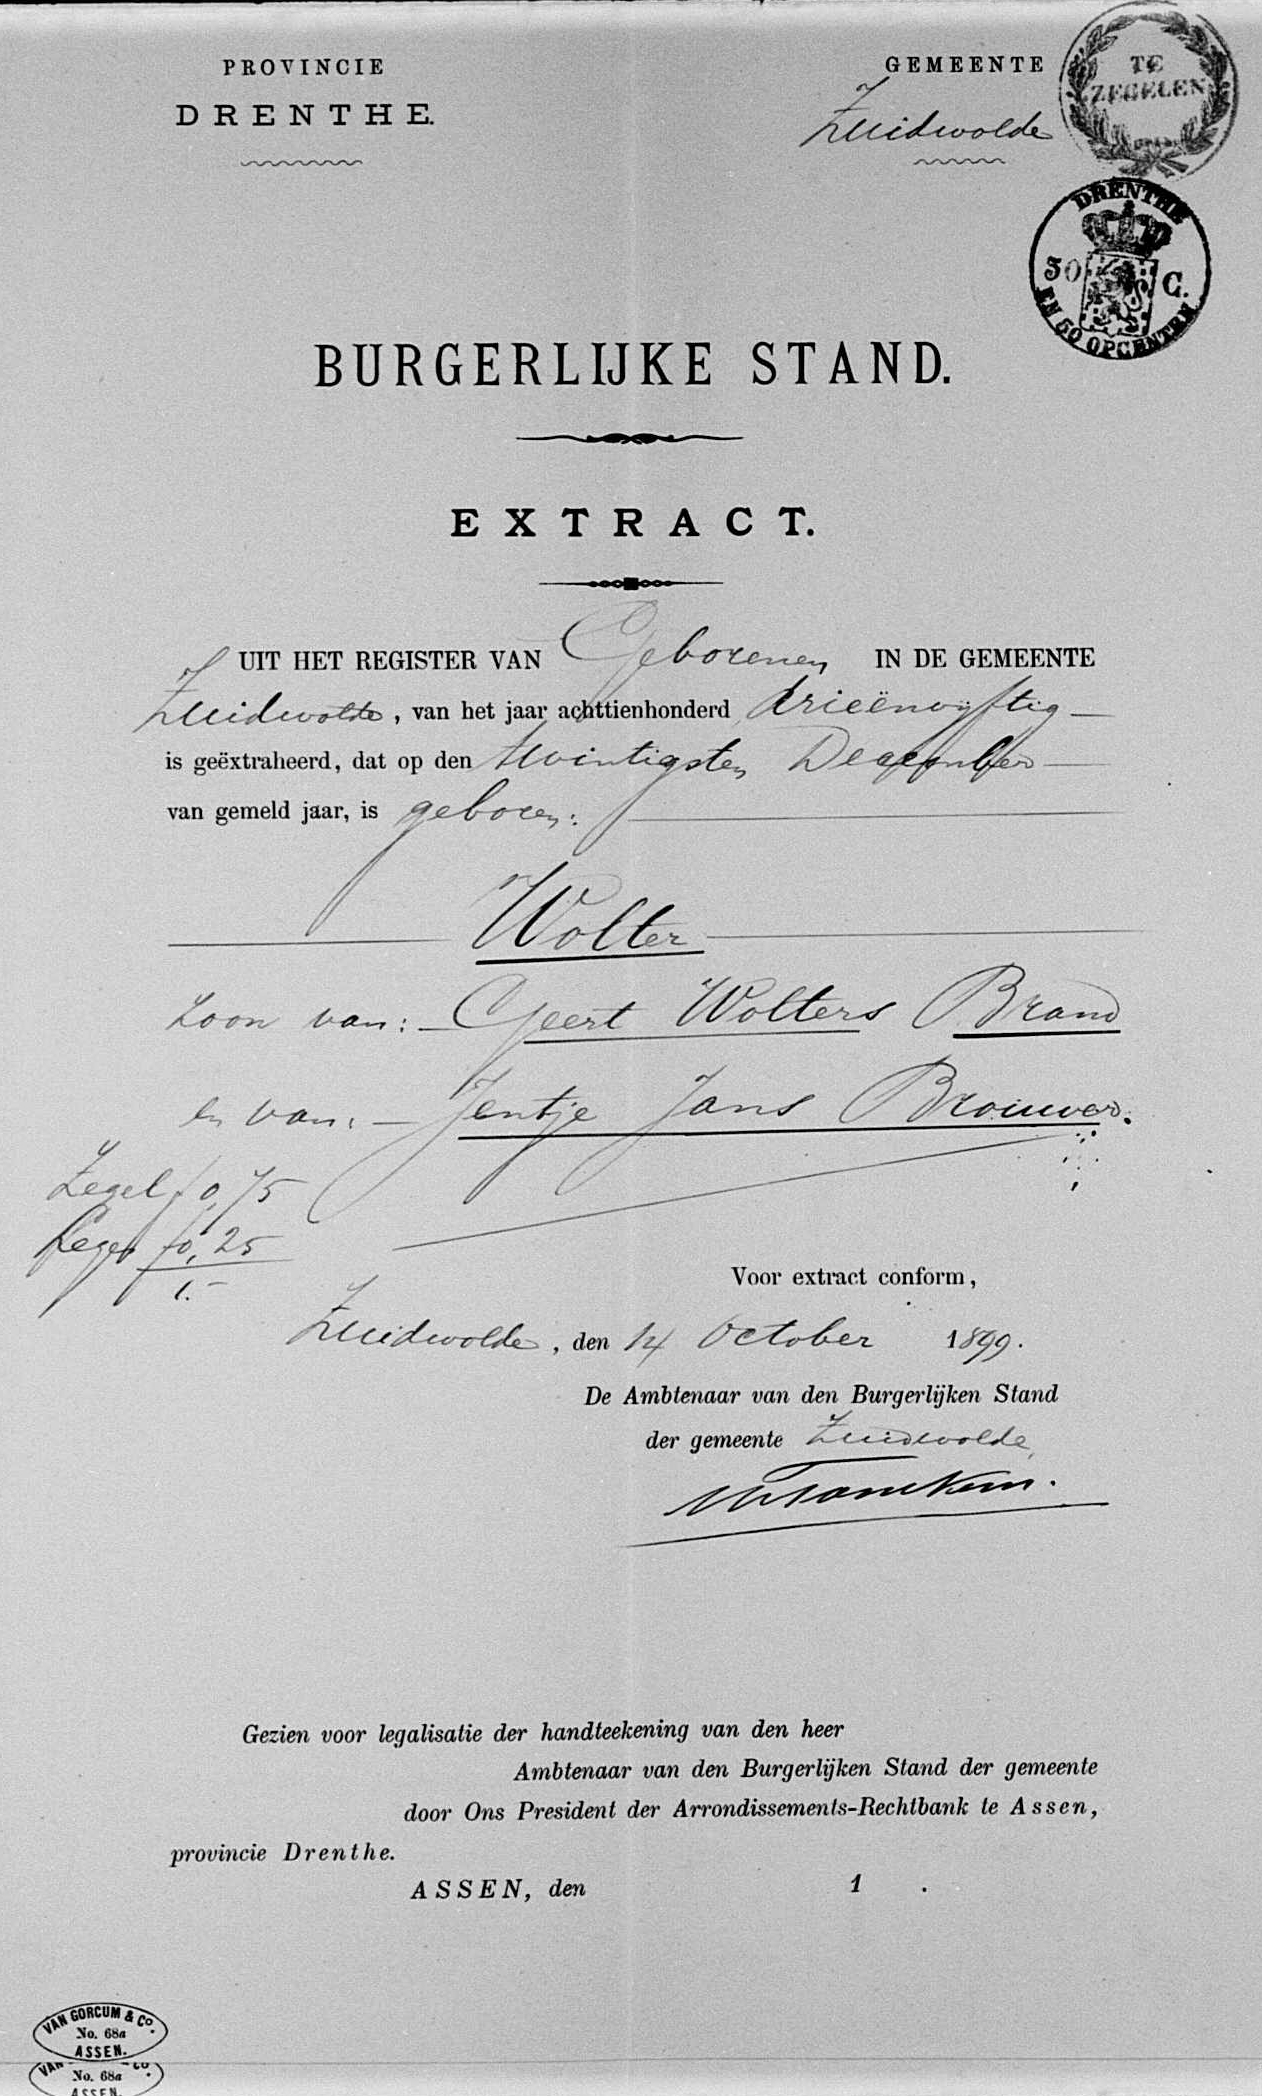 PROVINCIE
DRENTHE.
GEMEENTE
Zuidwolde
TE
ZEGELEN
DRENTHE
50 C.
EN 50 OPCENTEN
BURGERLIJKE STAND.
EXTRACT.
UIT HET REGISTER VAN Geborenen IN DE GEMEENTE
Zuidwolde, van het jaar achttienhonderd drieënvijftig
is geëxtraheerd, dat op den twintigsten December
van gemeld jaar, is geboren:
Wolter
zoon van: Geert Wolters Brand
en van: Jentje Jans Brouwer.
Zegel f 0,75
Leges f 0,25
1.-
Voor extract conform,
Zuidwolde, den 14 October 1899.
De Ambtenaar van den Burgerlijken Stand
der gemeente Zuidwolde,
Gezien voor legalisatie der handteekening van den heer
Ambtenaar van den Burgerlijken Stand der gemeente
door Ons President der Arrondissements-Rechtbank te Assen,
provincie Drenthe.
ASSEN, den 1 .
VAN GORCUM & Co.
No. 68a
ASSEN.
VAN Co.
No. 68a
ASSEN.